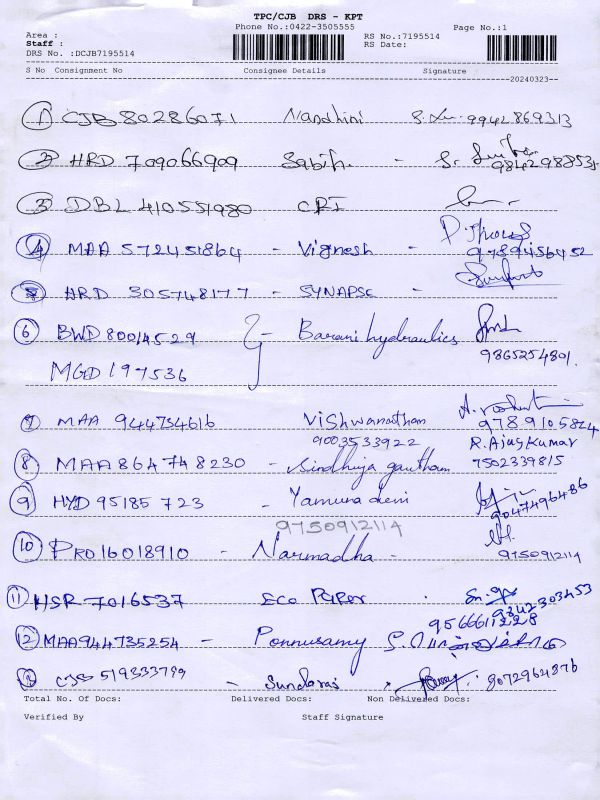 TPC/CJB DRS - KPT
Phone No.:0422-3505555
Page No.:1
Area :
Staff :
RS No.:7195514
RS Date:
DRS No. :DCJB7195514
S No Consignment No Consignee Details Signature
20240323--
1 CJB 80286071 Nandhini 9942869313
2 HRD 709066909 Sabih. - 9842988535
3 DBL 410551980 CRI
4 MAA 572451864 - Vignesh - 9789456452
5 HRD 305748177 - SYNAPSE -
6 BWD 80014529 - Barani hydraulics
MGD 197536 9865254801.
7 MAA 944734616 Vishwanathan 9789105824
9003533922 R.Ajay Kumar
8 MAA 864748230 - Sindhuja gautham 7502339815
9 HYD 95185723 - Yamuna devi 9047496486
9750912114
10 PRO 16018910 - Narmadha - 9750912114
11 HSR 7016537 Eco Paper - 9342303453
9566611228
12 MAA944735254 - Ponnusamy
CJB 519333799 - Sundaraj 8072964876
Total No. Of Docs: Delivered Docs: Non Delivered Docs:
Verified By Staff Signature